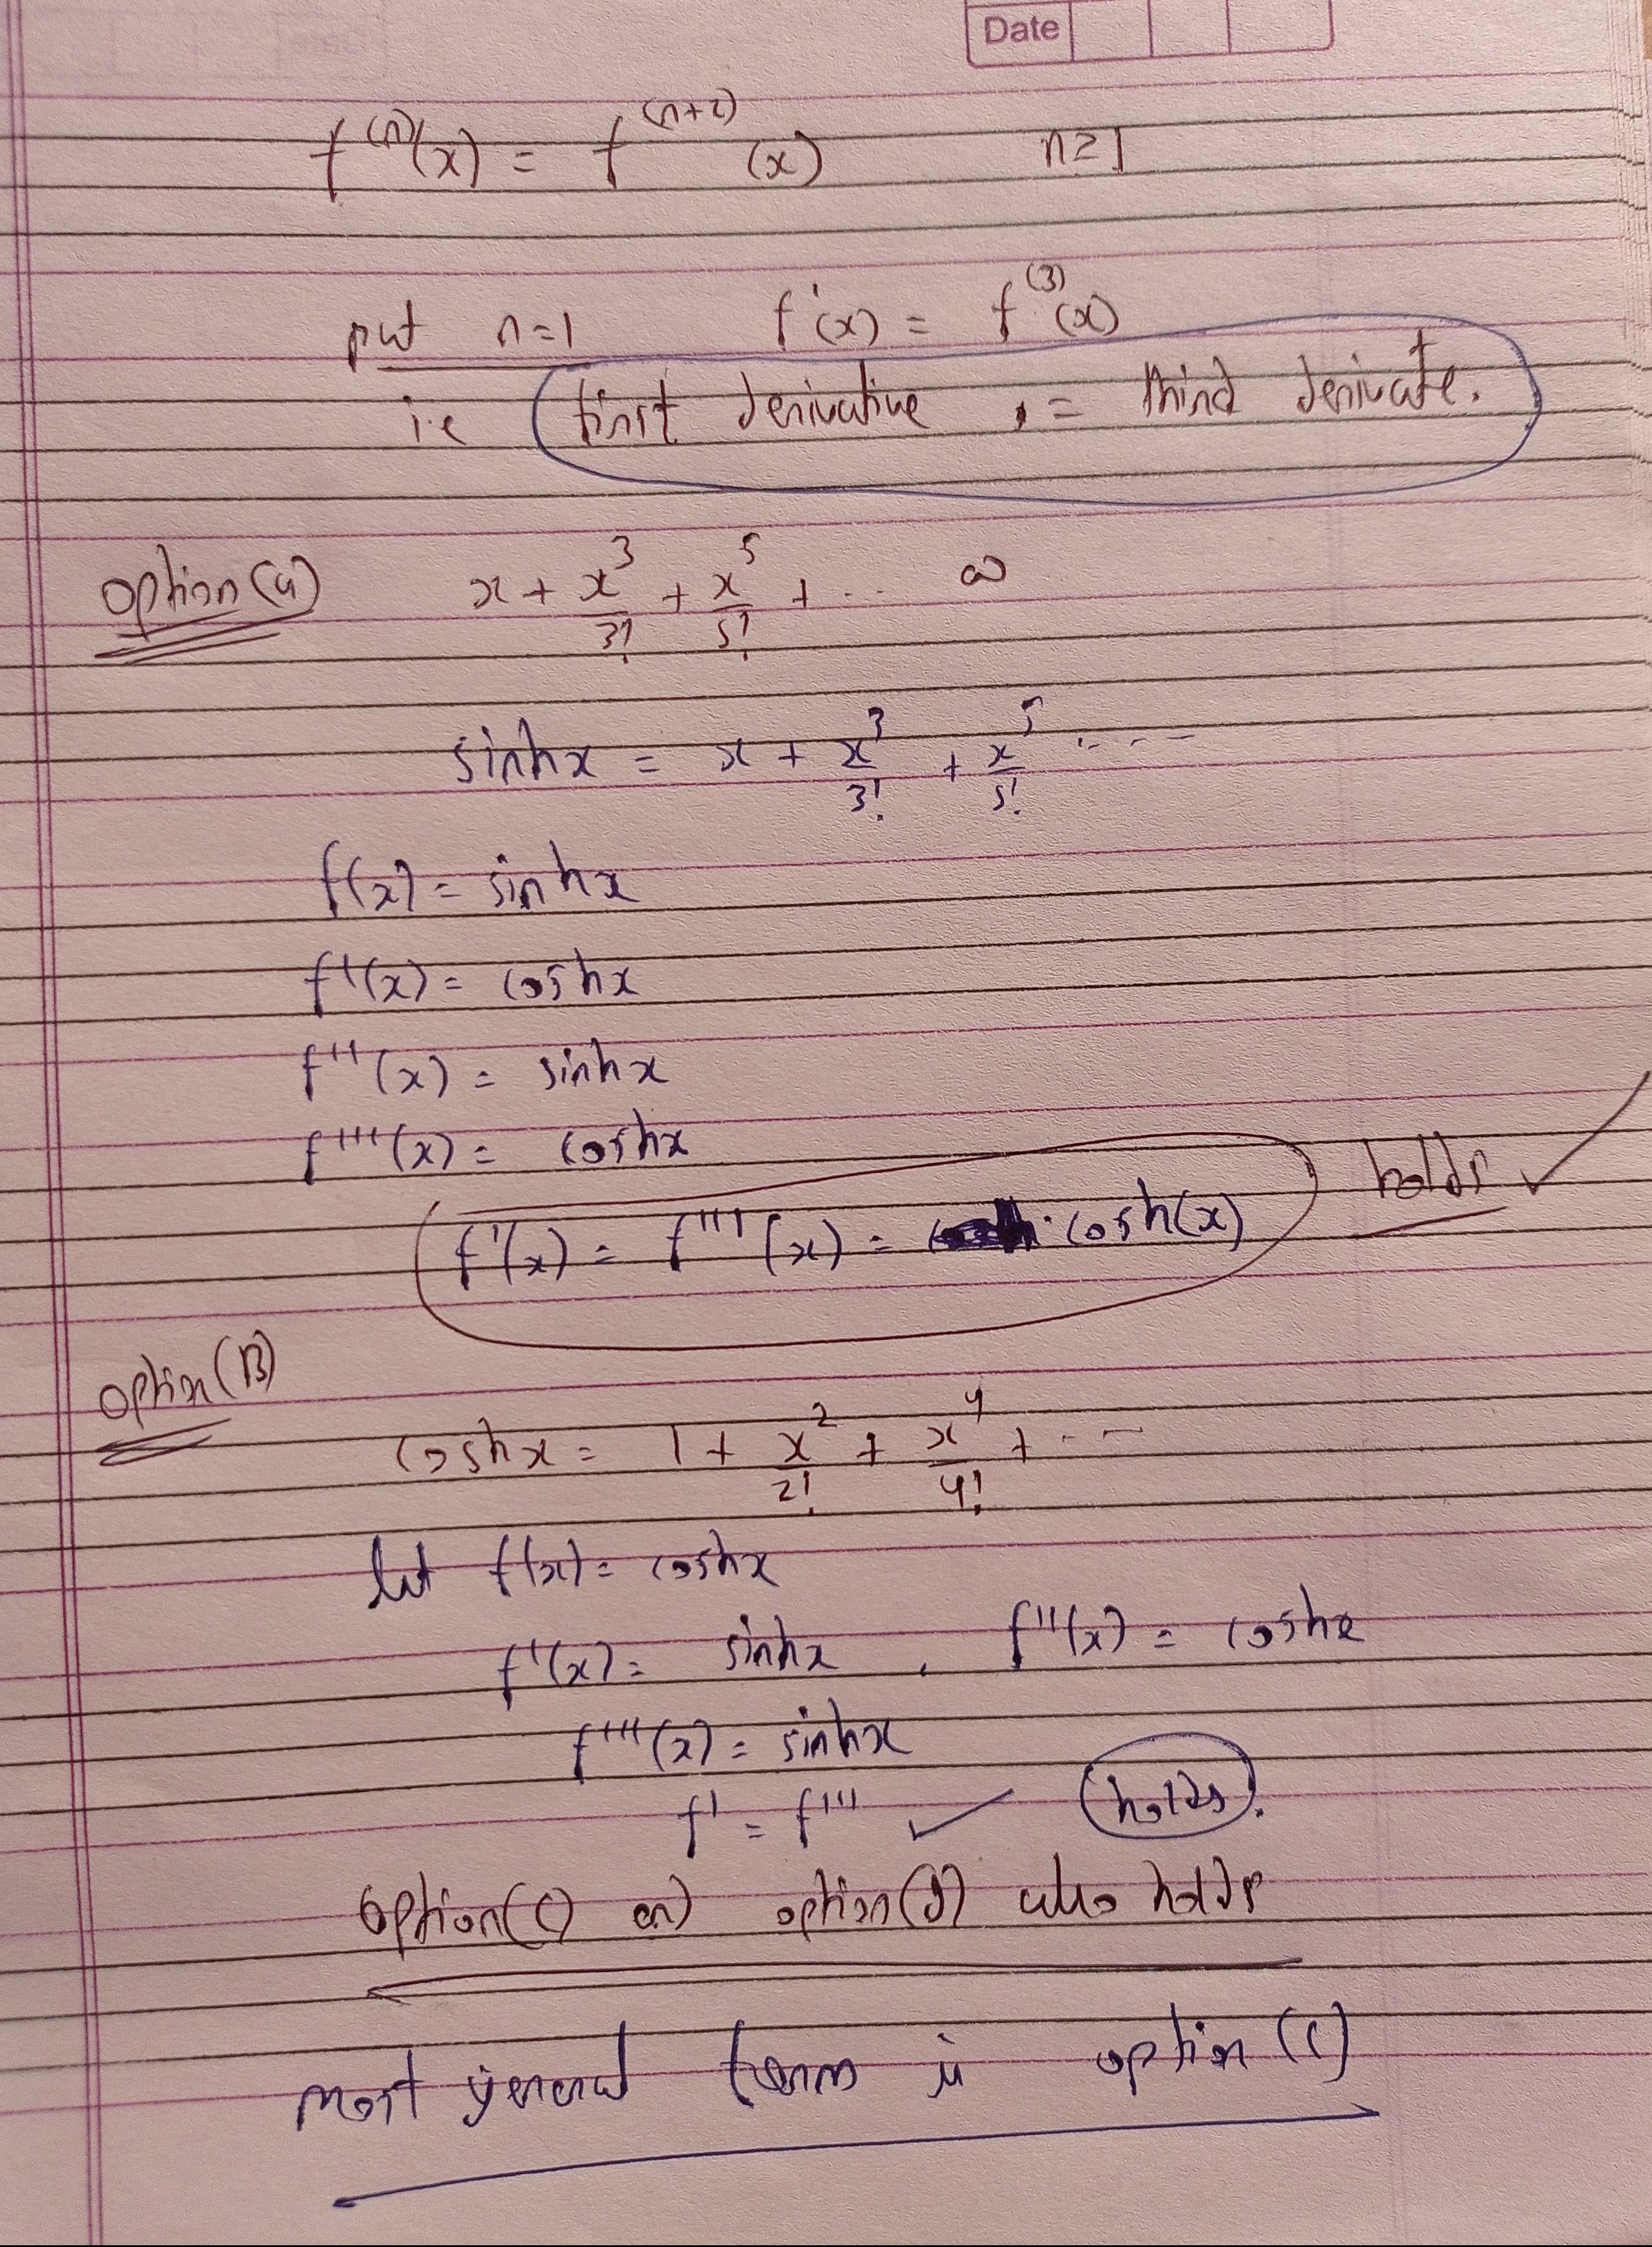 Date
f^(n)(x) = f^(n+2)(x) n≥1
put n=1 f'(x) = f^(3)(x)
i.e first derivative , = third derivate.
option(a) x + x^3/3! + x^5/5! + ... ∞
sinhx = x + x^3/3! + x^5/5! ....
f(x) = sinhx
f'(x) = coshx
f''(x) = sinhx
f'''(x) = coshx
f'(x) = f'''(x) = cosh(x) holds ✓
option(B)
coshx = 1 + x^2/2! + x^4/4! + ...
let f(x) = coshx
f'(x) = sinhx , f''(x) = coshx
f'''(x) = sinhx
f' = f''' ✓ holds.
option(C) option(d) also holds
most general form is option (C)